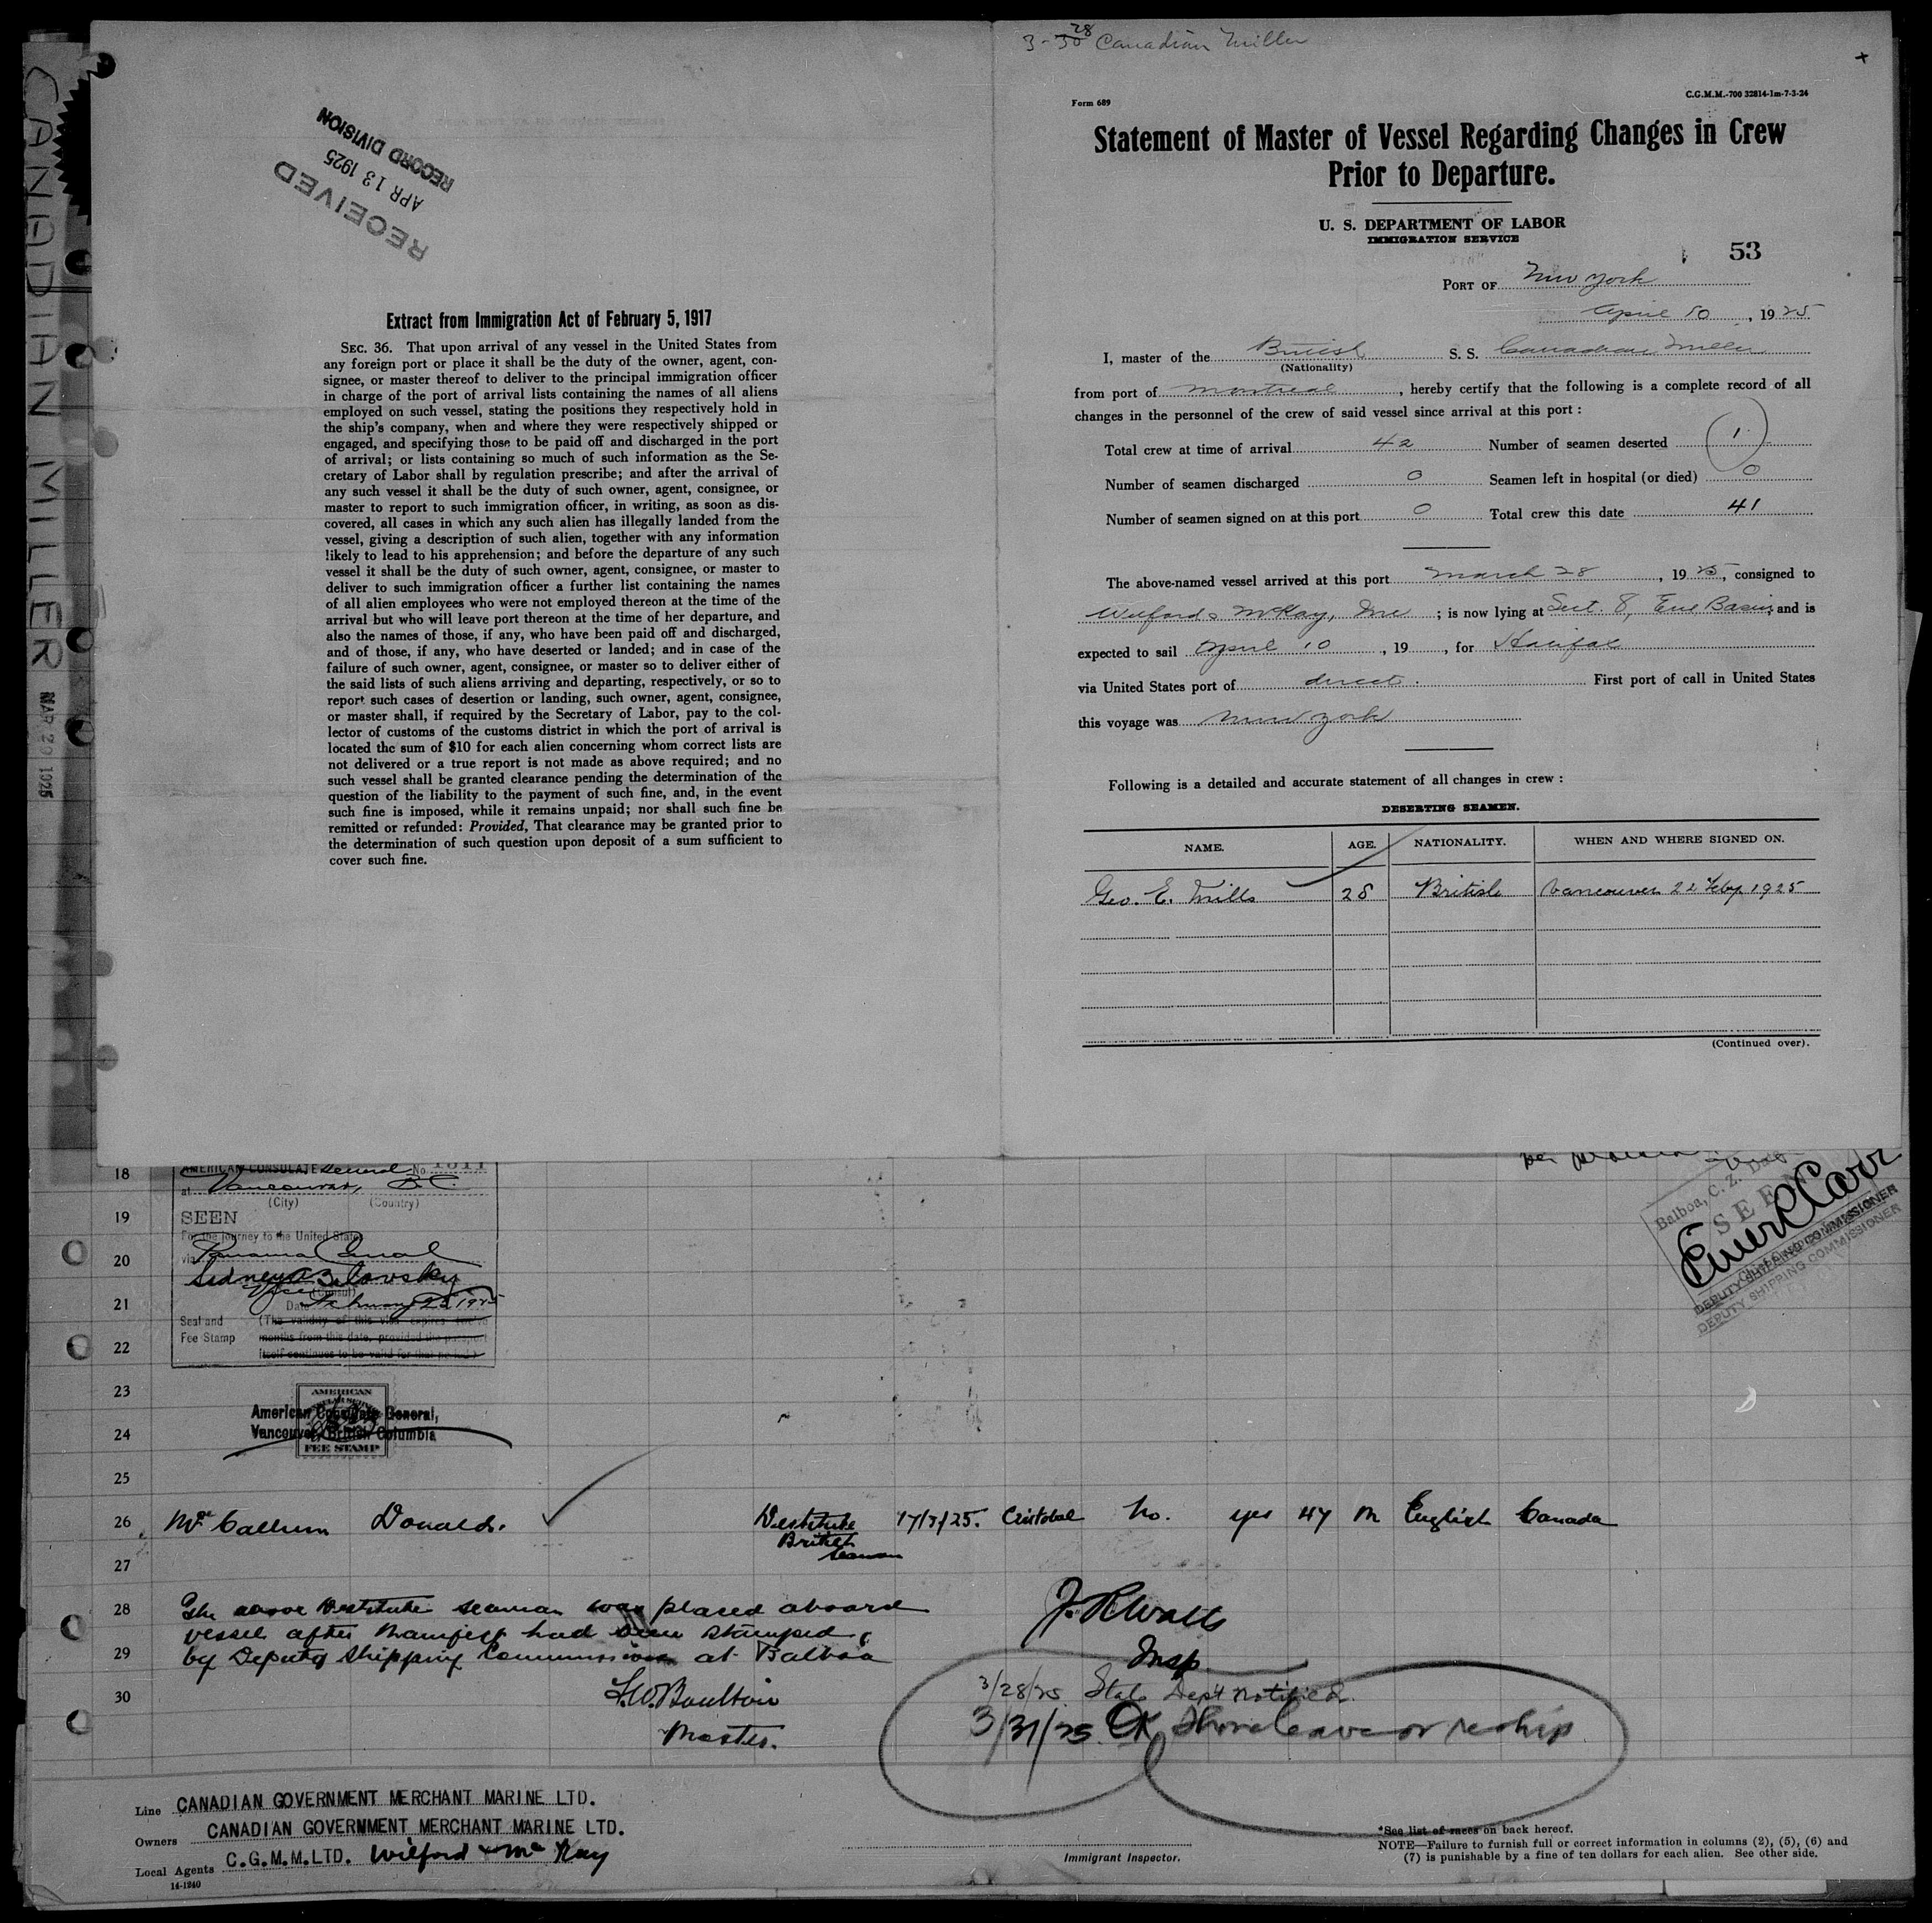 CANADIAN MILLER MAR 29 1925
RECEIVED
APR 13 1925
RECORD DIVISION
Extract from Immigration Act of February 5, 1917
SEC. 36. That upon arrival of any vessel in the United States from
any foreign port or place it shall be the duty of the owner, agent, con-
signee, or master thereof to deliver to the principal immigration officer
in charge of the port of arrival lists containing the names of all aliens
employed on such vessel, stating the positions they respectively hold in
the ship's company, when and where they were respectively shipped or
engaged, and specifying those to be paid off and discharged in the port
of arrival; or lists containing so much of such information as the Se-
cretary of Labor shall by regulation prescribe; and after the arrival of
any such vessel it shall be the duty of such owner, agent, consignee, or
master to report to such immigration officer, in writing, as soon as dis-
covered, all cases in which any such alien has illegally landed from the
vessel, giving a description of such alien, together with any information
likely to lead to his apprehension; and before the departure of any such
vessel it shall be the duty of such owner, agent, consignee, or master to
deliver to such immigration officer a further list containing the names
of all alien employees who were not employed thereon at the time of the
arrival but who will leave port thereon at the time of her departure, and
also the names of those, if any, who have been paid off and discharged,
and of those, if any, who have deserted or landed; and in case of the
failure of such owner, agent, consignee, or master so to deliver either of
the said lists of such aliens arriving and departing, respectively, or so to
report such cases of desertion or landing, such owner, agent, consignee,
or master shall, if required by the Secretary of Labor, pay to the col-
lector of customs of the customs district in which the port of arrival is
located the sum of $10 for each alien concerning whom correct lists are
not delivered or a true report is not made as above required; and no
such vessel shall be granted clearance pending the determination of the
question of the liability to the payment of such fine, and, in the event
such fine is imposed, while it remains unpaid; nor shall such fine be
remitted or refunded: Provided, That clearance may be granted prior to
the determination of such question upon deposit of a sum sufficient to
cover such fine.
3-30 28 Canadian Miller
Form 689 C.G.M.M.-700 32814-1m-7-3-24
Statement of Master of Vessel Regarding Changes in Crew
Prior to Departure.
U. S. DEPARTMENT OF LABOR
IMMIGRATION SERVICE
53
PORT OF New York
April 10, 1925
I, master of the British S. S. Canadian Miller
(Nationality)
from port of Montreal, hereby certify that the following is a complete record of all
changes in the personnel of the crew of said vessel since arrival at this port :
Total crew at time of arrival 42 Number of seamen deserted 1
Number of seamen discharged 0 Seamen left in hospital (or died) 0
Number of seamen signed on at this port 0 Total crew this date 41
The above-named vessel arrived at this port March 28, 1925, consigned to
Wilford & McKay, Inc ; is now lying at Sect. 8, Erie Basin; and is
expected to sail April 10, 19 , for Halifax
via United States port of direct. First port of call in United States
this voyage was New York
Following is a detailed and accurate statement of all changes in crew :
DESERTING SEAMEN.
NAME. AGE. NATIONALITY. WHEN AND WHERE SIGNED ON.
Geo. E. Mills 28 British Vancouver 22 Feby 1925
(Continued over).
18
AMERICAN CONSULATE General No 1311
at Vancouver, B.C.
(City) (Country)
19
SEEN
For the journey to the United States
20
via Panama Canal
Vice (Consul)
21
Date February 25 1925
Seal and (The validity of this visa expires twelve
Fee Stamp months from this date, provided the passport
22
itself continues to be valid for that period.)
Balboa, C. Z.
SEEN
DEPUTY SHIPPING COMMISSIONER
DEPUTY SHIPPING COMMISSIONER
23
AMERICAN
American Consulate General,
24
Vancouver, British Columbia
FEE STAMP
25
26 McCallum Donald. Destitute 17/3/25. Cristobal No. yes 47 M English Canada
British
Seaman
27
28 The above Destitute seaman was placed aboard
vessel after Manifest had been stamped
29 by Deputy Shipping Commissioner at Balboa
Insp.
30
Master.
3/28/25 State Dept notified.
3/31/25 OK Shore leave or reship
Line CANADIAN GOVERNMENT MERCHANT MARINE LTD.
Owners CANADIAN GOVERNMENT MERCHANT MARINE LTD.
Local Agents C.G.M.M.LTD. Wilford & McKay
14-1240
Immigrant Inspector.
*See list of races on back hereof.
NOTE—Failure to furnish full or correct information in columns (2), (5), (6) and
(7) is punishable by a fine of ten dollars for each alien. See other side.